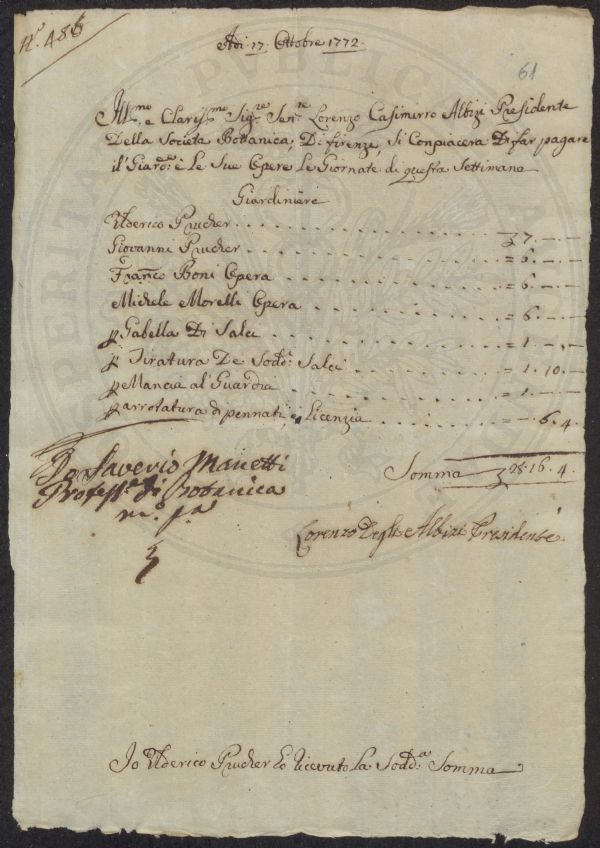 N.º 486
Adi 17. Ottobre 1772.
61
Ill.mo e Clariss.mo Sig.re Sen.re Lorenzo Casimirro Albizi Presidente
Della Societa Bottanica, Di firenze, Si Conpiacera Di far pagare
il Giard.e e Le Sue Opere Le Giornate di questa Settimana
Giardiniere
Ulderico Prucher . . . . . . . . . . 7. — —
Giovanni Prucher . . . . . . . . . . = 6. — —
Fran.co Boni Opera . . . . . . . . . . = 6. — —
Michele Morelli Opera . . . . . . . . = 6. — —
p Gabella Di Salci . . . . . . . . . . = 1. — —
p Tiratura De Sodd.i Salci . . . . . . = 1. 10. —
p Mancia al Guardia . . . . . . . . = 1. — —
p arrotatura di pennati, e Licenzia . . . . — 6. 4.
Somma 28. 16. 4.
Do. Saverio Manetti
Profess.re di Botanica
m.o p.a
Lorenzo Degli Albizi Presidente
Io Ulderico Prucher ho ricevuto La Sodd.a Somma